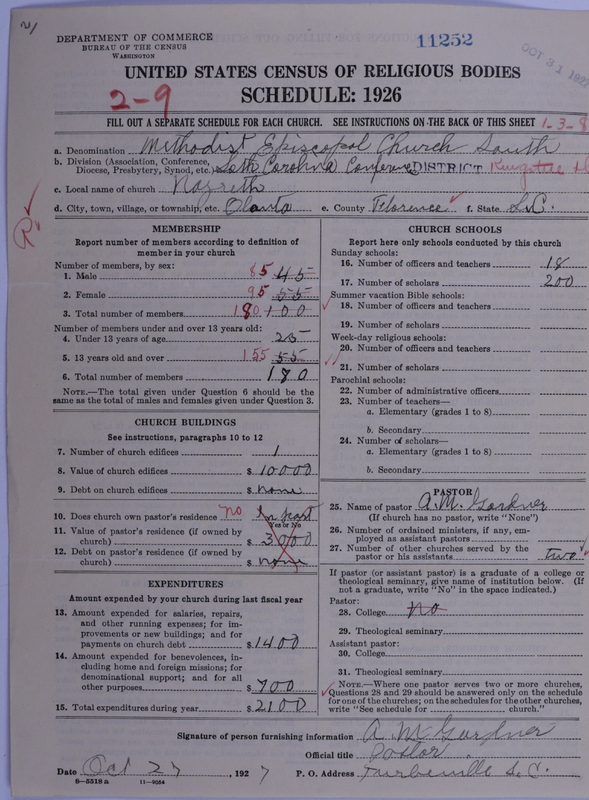 DEPARTMENT OF COMMERCE
BUREAU OF THE CENSUS
WASHINGTON
11252
OCT 31 1927
UNITED STATES CENSUS OF RELIGIOUS BODIES
SCHEDULE: 1926
2-9
FILL OUT A SEPARATE SCHEDULE FOR EACH CHURCH. SEE INSTRUCTIONS ON THE BACK OF THIS SHEET 1-3-8
a. Denomination Methodist Episcopal Church South
b. Division (Association, Conference, Diocese, Presbytery, Synod, etc.) South Carolina Conference DISTRICT Kingstree
c. Local name of church Nazreth
d. City, town, village, or township, etc. Olanta e. County Florence f. State S.C.
MEMBERSHIP
Report number of members according to definition of
member in your church
Number of members, by sex:
1. Male 85 45
2. Female 95 55
3. Total number of members 180 100
Number of members under and over 13 years old:
4. Under 13 years of age 25
5. 13 years old and over 155 55
6. Total number of members 180
NOTE.—The total given under Question 6 should be the
same as the total of males and females given under Question 3.
CHURCH BUILDINGS
See instructions, paragraphs 10 to 12
7. Number of church edifices 1
8. Value of church edifices $ 10000
9. Debt on church edifices $ none
10. Does church own pastor's residence no In part
Yes or No
11. Value of pastor's residence (if owned by
church) $ 3000
12. Debt on pastor's residence (if owned by
church) $ none
EXPENDITURES
Amount expended by your church during last fiscal year
13. Amount expended for salaries, repairs,
and other running expenses; for im-
provements or new buildings; and for
payments on church debt $ 1400
14. Amount expended for benevolences, in-
cluding home and foreign missions; for
denominational support; and for all
other purposes $ 700
15. Total expenditures during year $ 2100
CHURCH SCHOOLS
Report here only schools conducted by this church
Sunday schools:
16. Number of officers and teachers 18
17. Number of scholars 200
Summer vacation Bible schools:
18. Number of officers and teachers
19. Number of scholars
Week-day religious schools:
20. Number of officers and teachers
21. Number of scholars
Parochial schools:
22. Number of administrative officers
23. Number of teachers—
a. Elementary (grades 1 to 8)
b. Secondary
24. Number of scholars—
a. Elementary (grades 1 to 8)
b. Secondary
PASTOR
25. Name of pastor A. M. Gardner
(If church has no pastor, write "None")
26. Number of ordained ministers, if any, em-
ployed as assistant pastors
27. Number of other churches served by the
pastor or his assistants two
If pastor (or assistant pastor) is a graduate of a college or
theological seminary, give name of institution below. (If
not a graduate, write "No" in the space indicated.)
Pastor:
28. College No
29. Theological seminary
Assistant pastor:
30. College
31. Theological seminary
NOTE.—Where one pastor serves two or more churches,
Questions 28 and 29 should be answered only on the schedule
for one of the churches; on the schedules for the other churches,
write "See schedule for church."
Signature of person furnishing information A M Gardner
Official title Pastor
Date Oct 27, 1927 P. O. Address Turbeville S. C.
8—5318 a 11—9554